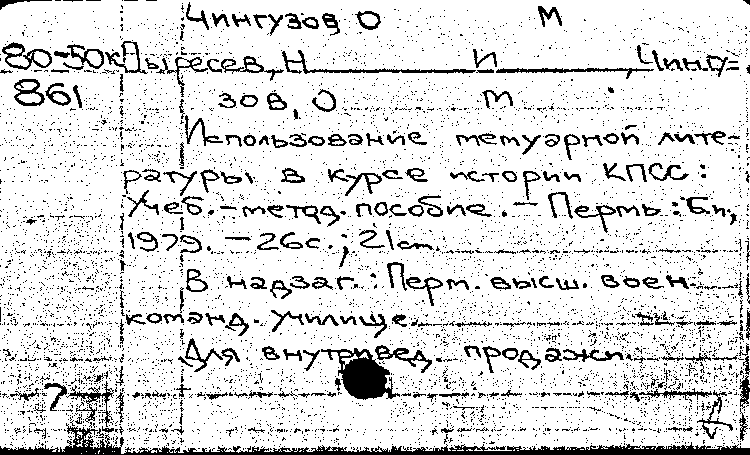 Чингузов О М
80-50к Пыресев, Н И , Чингу=
861 зов, О М
Использование мемуарной лите-
ратуры в курсе истории КПСС :
Учеб.-метод. пособие. - Пермь : Б.и,
1979. - 26с.; 21см.
В надзаг.: Перм. высш. воен.
команд. училище.
Для внутривед. продажи.
7